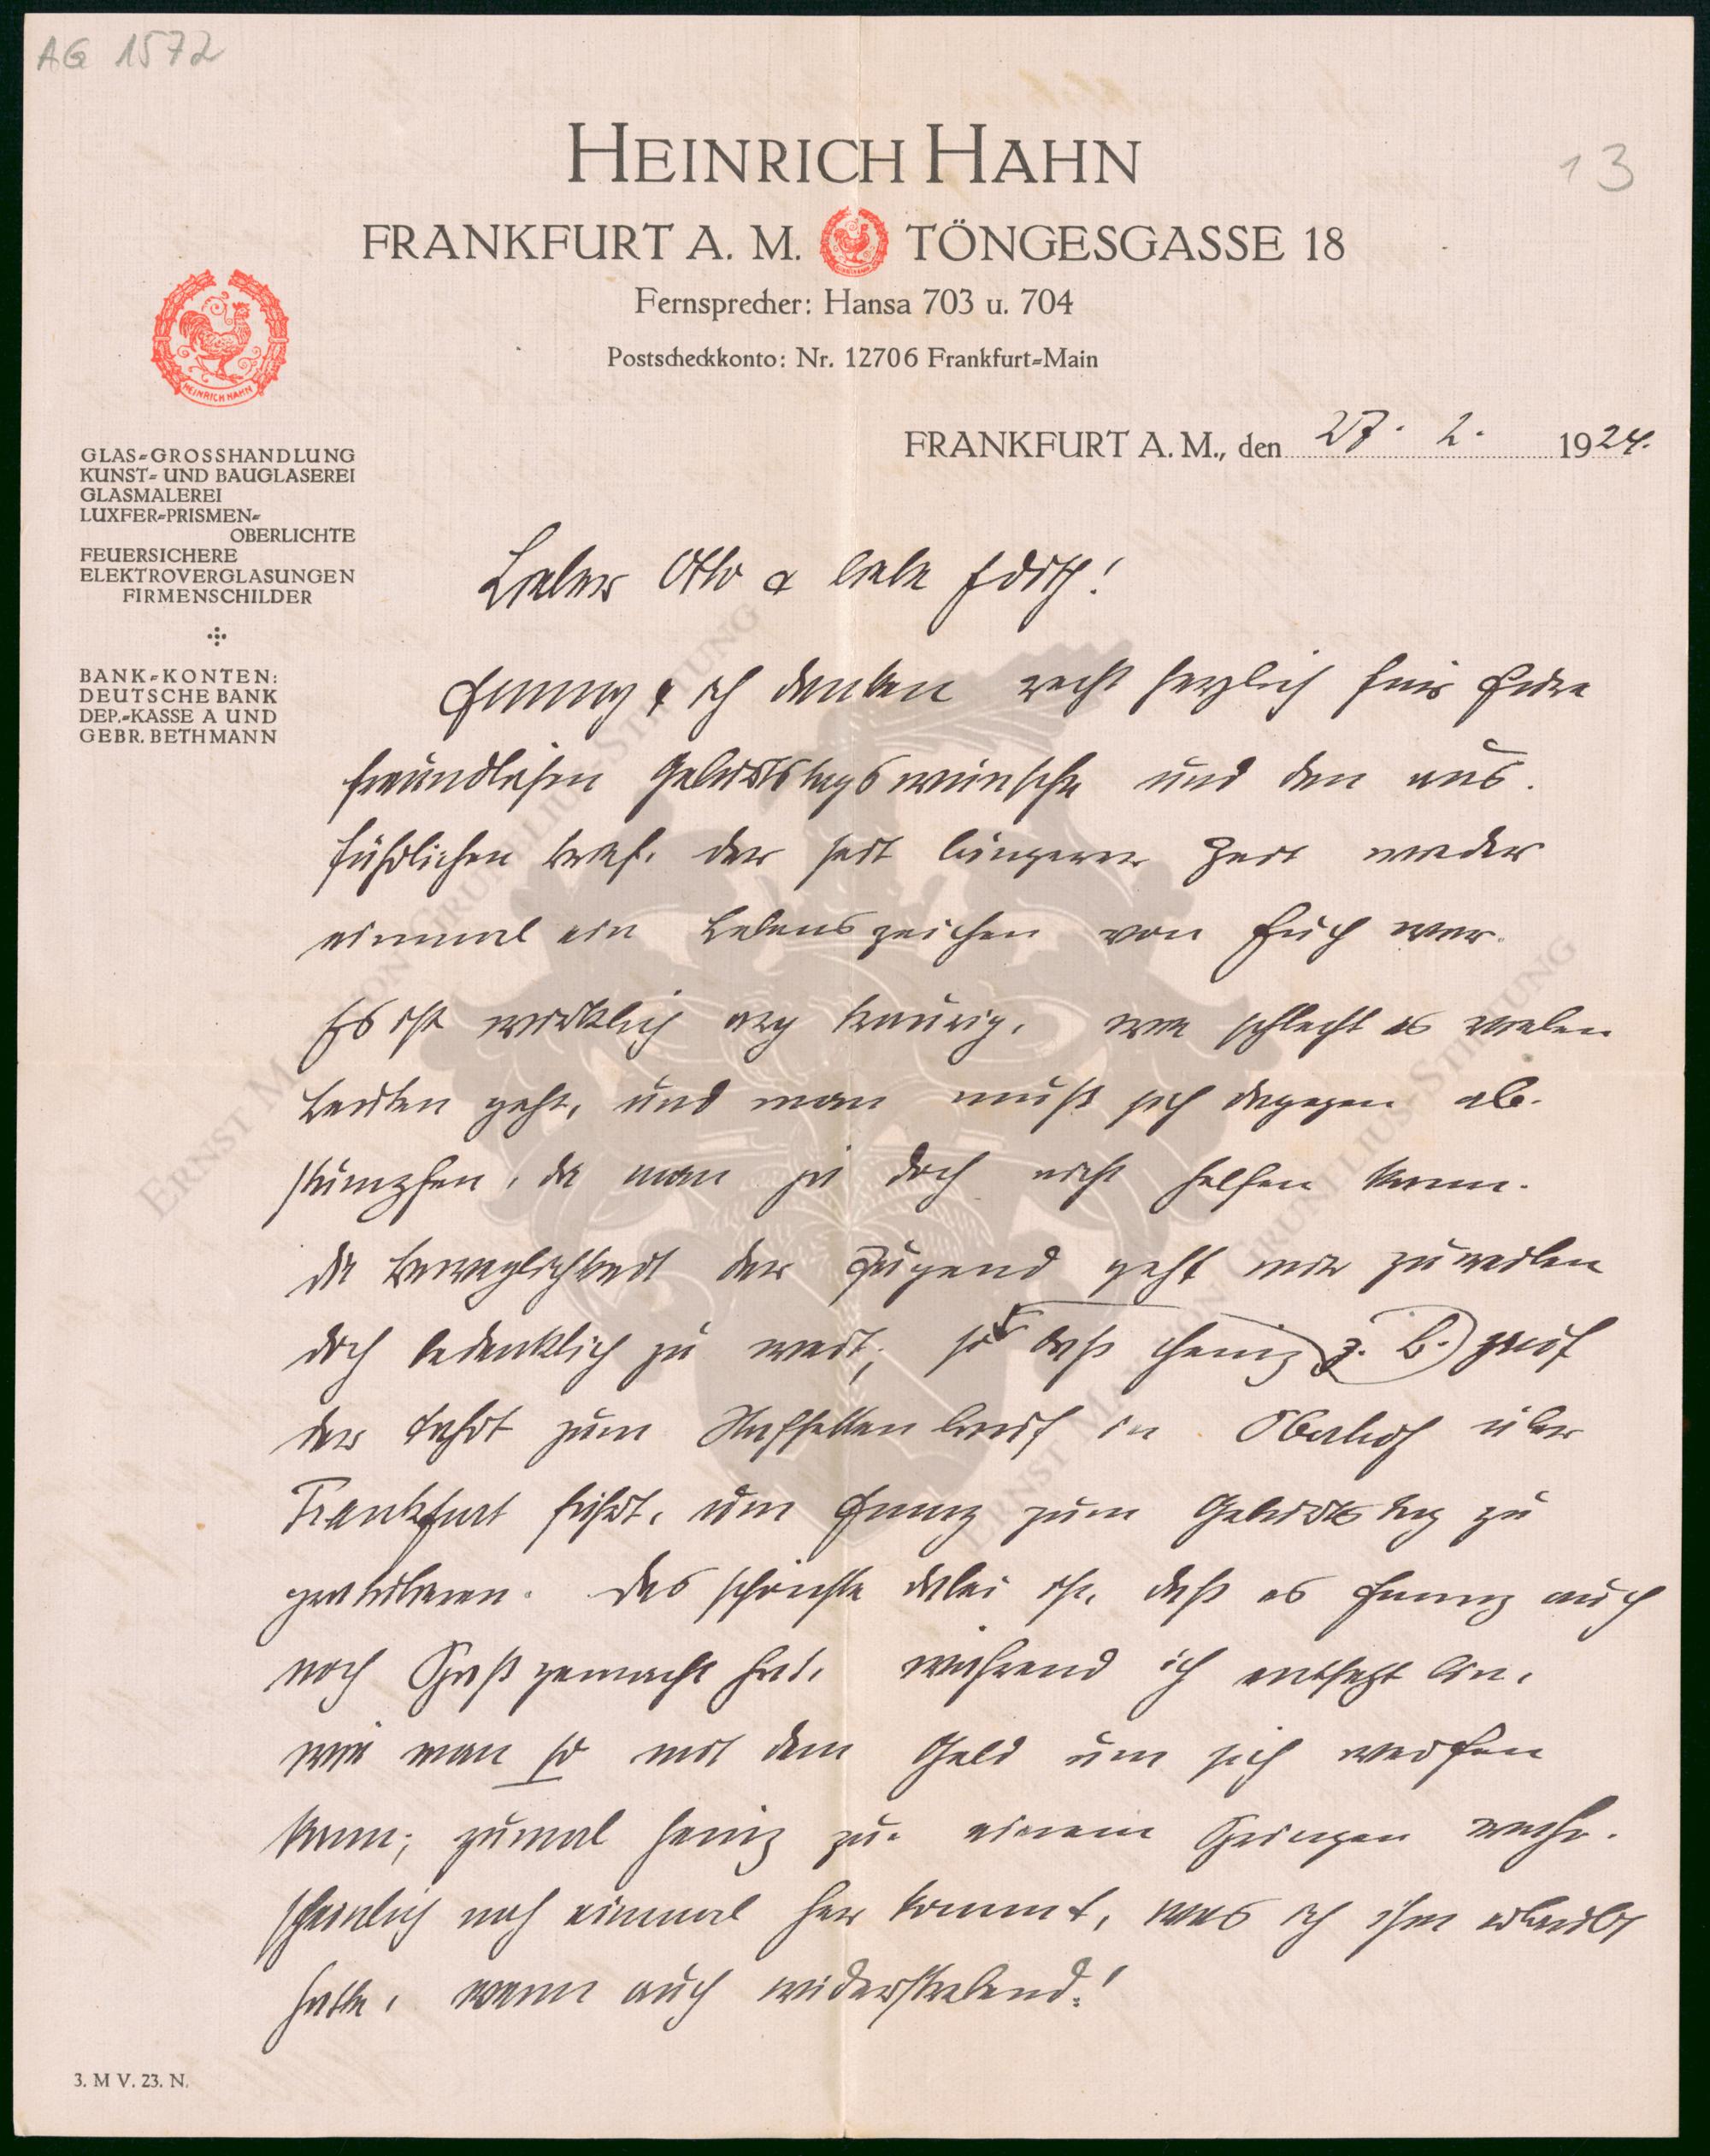 AG 1572
13
HEINRICH HAHN
FRANKFURT A. M. TÖNGESGASSE 18
Fernsprecher: Hansa 703 u. 704
Postscheckkonto: Nr. 12706 Frankfurt-Main
HEINRICH HAHN
FRANKFURT A. M., den 27. 2. 1924.
GLAS-GROSSHANDLUNG
KUNST- UND BAUGLASEREI
GLASMALEREI
LUXFER-PRISMEN-
OBERLICHTE
FEUERSICHERE
ELEKTROVERGLASUNGEN
FIRMENSCHILDER
BANK-KONTEN:
DEUTSCHE BANK
DEP.-KASSE A UND
GEBR. BETHMANN
Lieber Otto & liebe Edith!
Jenny & ich danken recht herzlich für Eure
freundlichen Geburtstagswünsche und den aus-
führlichen Brief, der seit längerer Zeit wieder
einmal ein Lebenszeichen von Euch war.
Es ist wirklich arg traurig, wie schlecht es vielen
Leuten geht, und man muß sich dagegen ab-
stumpfen, da man ja doch nicht helfen kann.
Die Beweglichkeit der Jugend geht mir zuweilen
doch bedenklich zu weit; so daß Heinz z. B. auf
der Fahrt zum Staffellauf in Oberhof über
Frankfurt fährt, um Jenny zum Geburtstag zu
gratulieren. Das schönste dabei ist, daß es Jenny auch
noch Spaß gemacht hat, während ich entsetzt bin,
wie man so mit dem Geld um sich werfen
kann; zumal Heinz zu einem Springen wahr-
scheinlich noch einmal her kommt, was ich ihm erlaubt
hatte, wenn auch widerstrebend!
3. M V. 23. N.
ERNST MAX VON GRUNELIUS-STIFTUNG
ERNST MAX VON GRUNELIUS-STIFTUNG